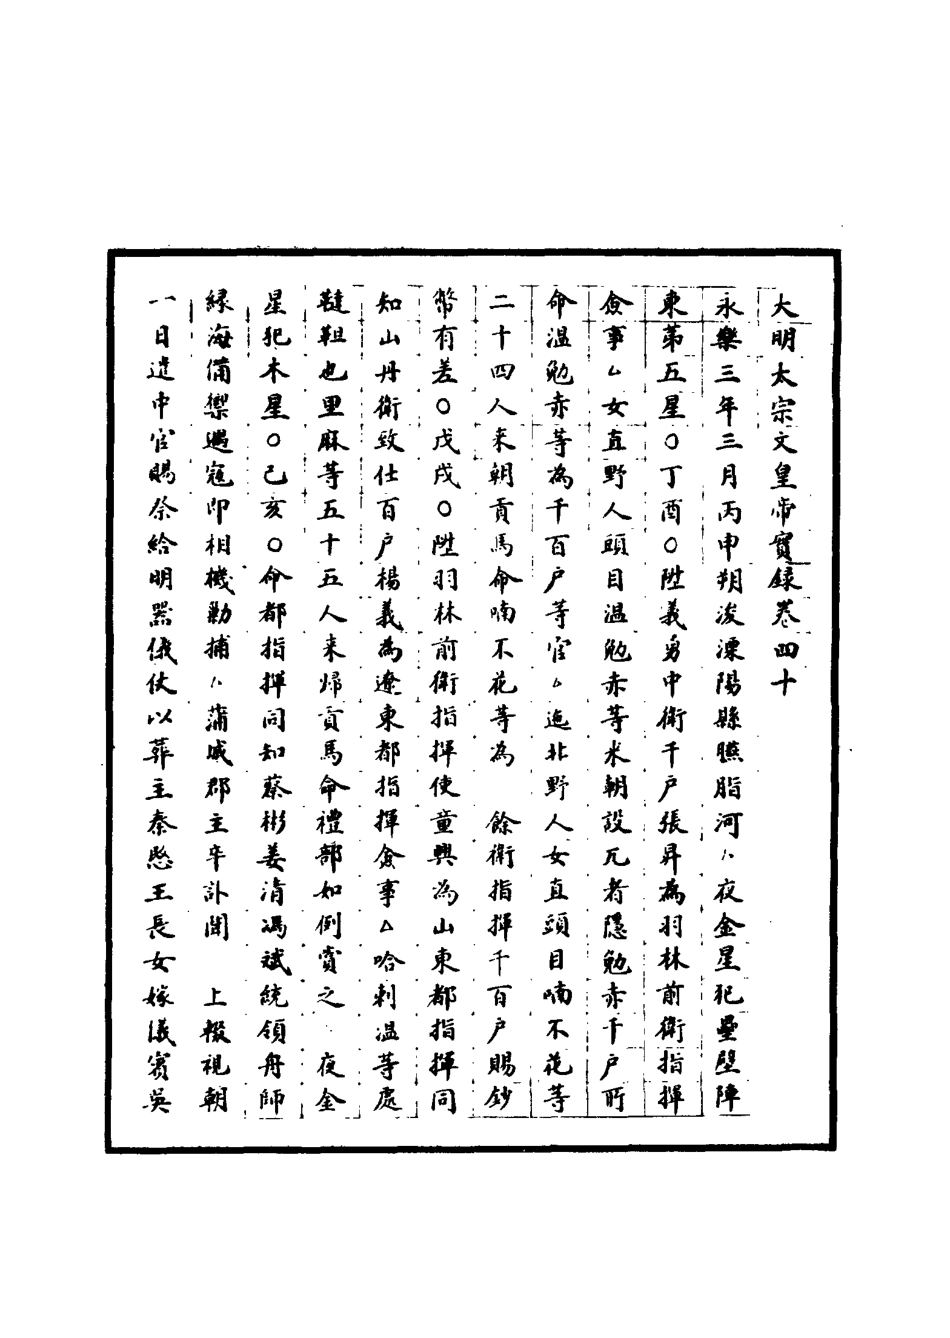 大明太宗文皇帝寶録卷四十
永樂三年三月丙申朔浚溧陽縣臙脂河〻夜金星犯壘壁陣
東第五星〇丁酉〇陞義勇中衛千戶張昇為羽林前衛指揮
僉事△女直野人頭目溫勉赤等來朝設兀者隱勉赤千戶所
命溫勉赤等為千百戶等官△迤北野人女直頭目喃不花等
二十四人来朝貢馬命喃不花等為　餘衛指揮千百戶賜鈔
幣有差〇戊戌〇陞羽林前衛指揮使童興為山東都指揮同
知山丹衛致仕百戶楊義為遼東都指揮僉事△哈剌溫等處
韃靼也里麻等五十五人来歸貢馬命禮部如例賞之　夜金
星犯木星〇己亥〇命都指揮同知蔡彬姜清馮斌統領舟師
緣海備禦遇寇即相機勦捕〻蒲城郡主卒訃聞　上輟視朝
一日遣中官賜祭給明器儀仗以葬主秦愍王長女嫁儀賓吳